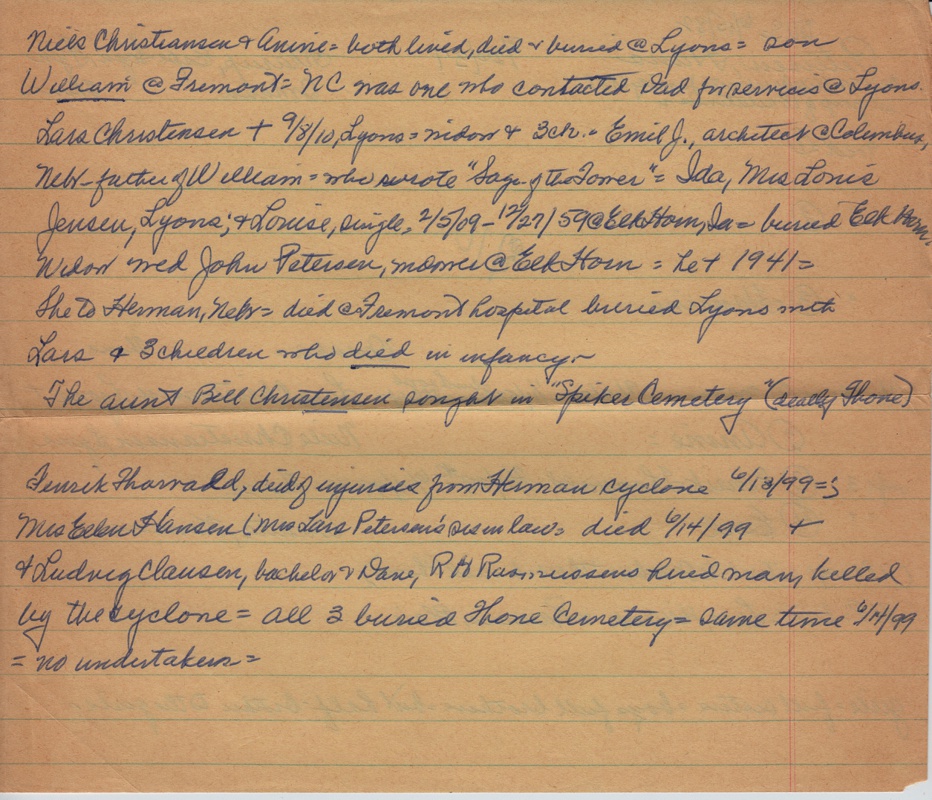 Niels Christiansen & Anine = both lived, died & buried @ Lyons = son
William @ Fremont = NC was one who contacted Dad for services @ Lyons.
Lars Christensen + 9/8/10, Lyons = widow & 3 ch. = Emil J., architect @ Columbus,
Nebr - father of William = who wrote "Saga of the Tower" = Ida, Mrs Louis
Jensen, Lyons; & Louise, single, 2/5/09 - 12/27/59 @ Elk Horn, Ia = buried Elk Horn.
Widow wed John Petersen, @ Elk Horn = he + 1941 =
She to Herman, Nebr = died @ Fremont hospital buried Lyons with
Lars & 3 children who died in infancy -
The aunt Bill Christensen sought in "Spiker Cemetery" (really Thone)
Henrik Thorvald, died of injuries from Herman cyclone 6/13/99 =;
Mrs Ellen Hansen (Mrs Lars Petersen's sis in law = died 6/14/99 +
& Ludvig Clausen, bachelor & Dane, R H Rasmussens hired man, killed
by the cyclone = all 3 buried Thone Cemetery = same time 6/14/99
= no undertakers =